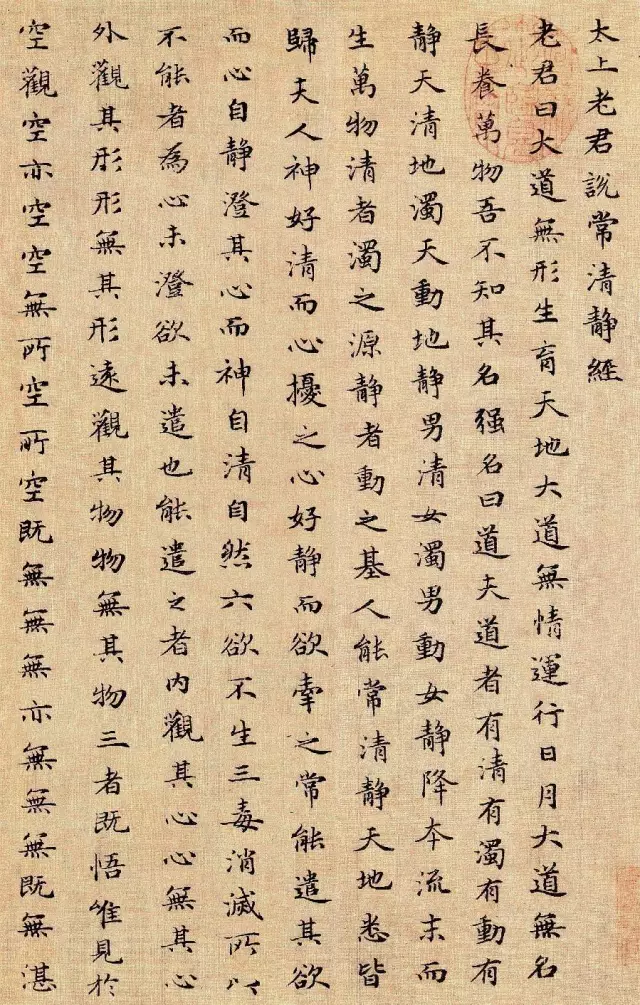 太上老君說常清靜經
老君曰大道無形生育天地大道無情運行日月大道無名
長養萬物吾不知其名强名曰道夫道者有清有濁有動有
靜天清地濁天動地靜男清女濁男動女靜降本流末而
生萬物清者濁之源靜者動之基人能常清靜天地悉皆
歸夫人神好清而心擾之心好靜而欲牽之常能遣其欲
而心自靜澄其心而神自清自然六欲不生三毒消滅所以
不能者為心未澄欲未遣也能遣之者內觀其心心無其心
外觀其形形無其形遠觀其物物無其物三者既悟唯見於
空觀空亦空空無所空所空既無無無亦無無無既無湛